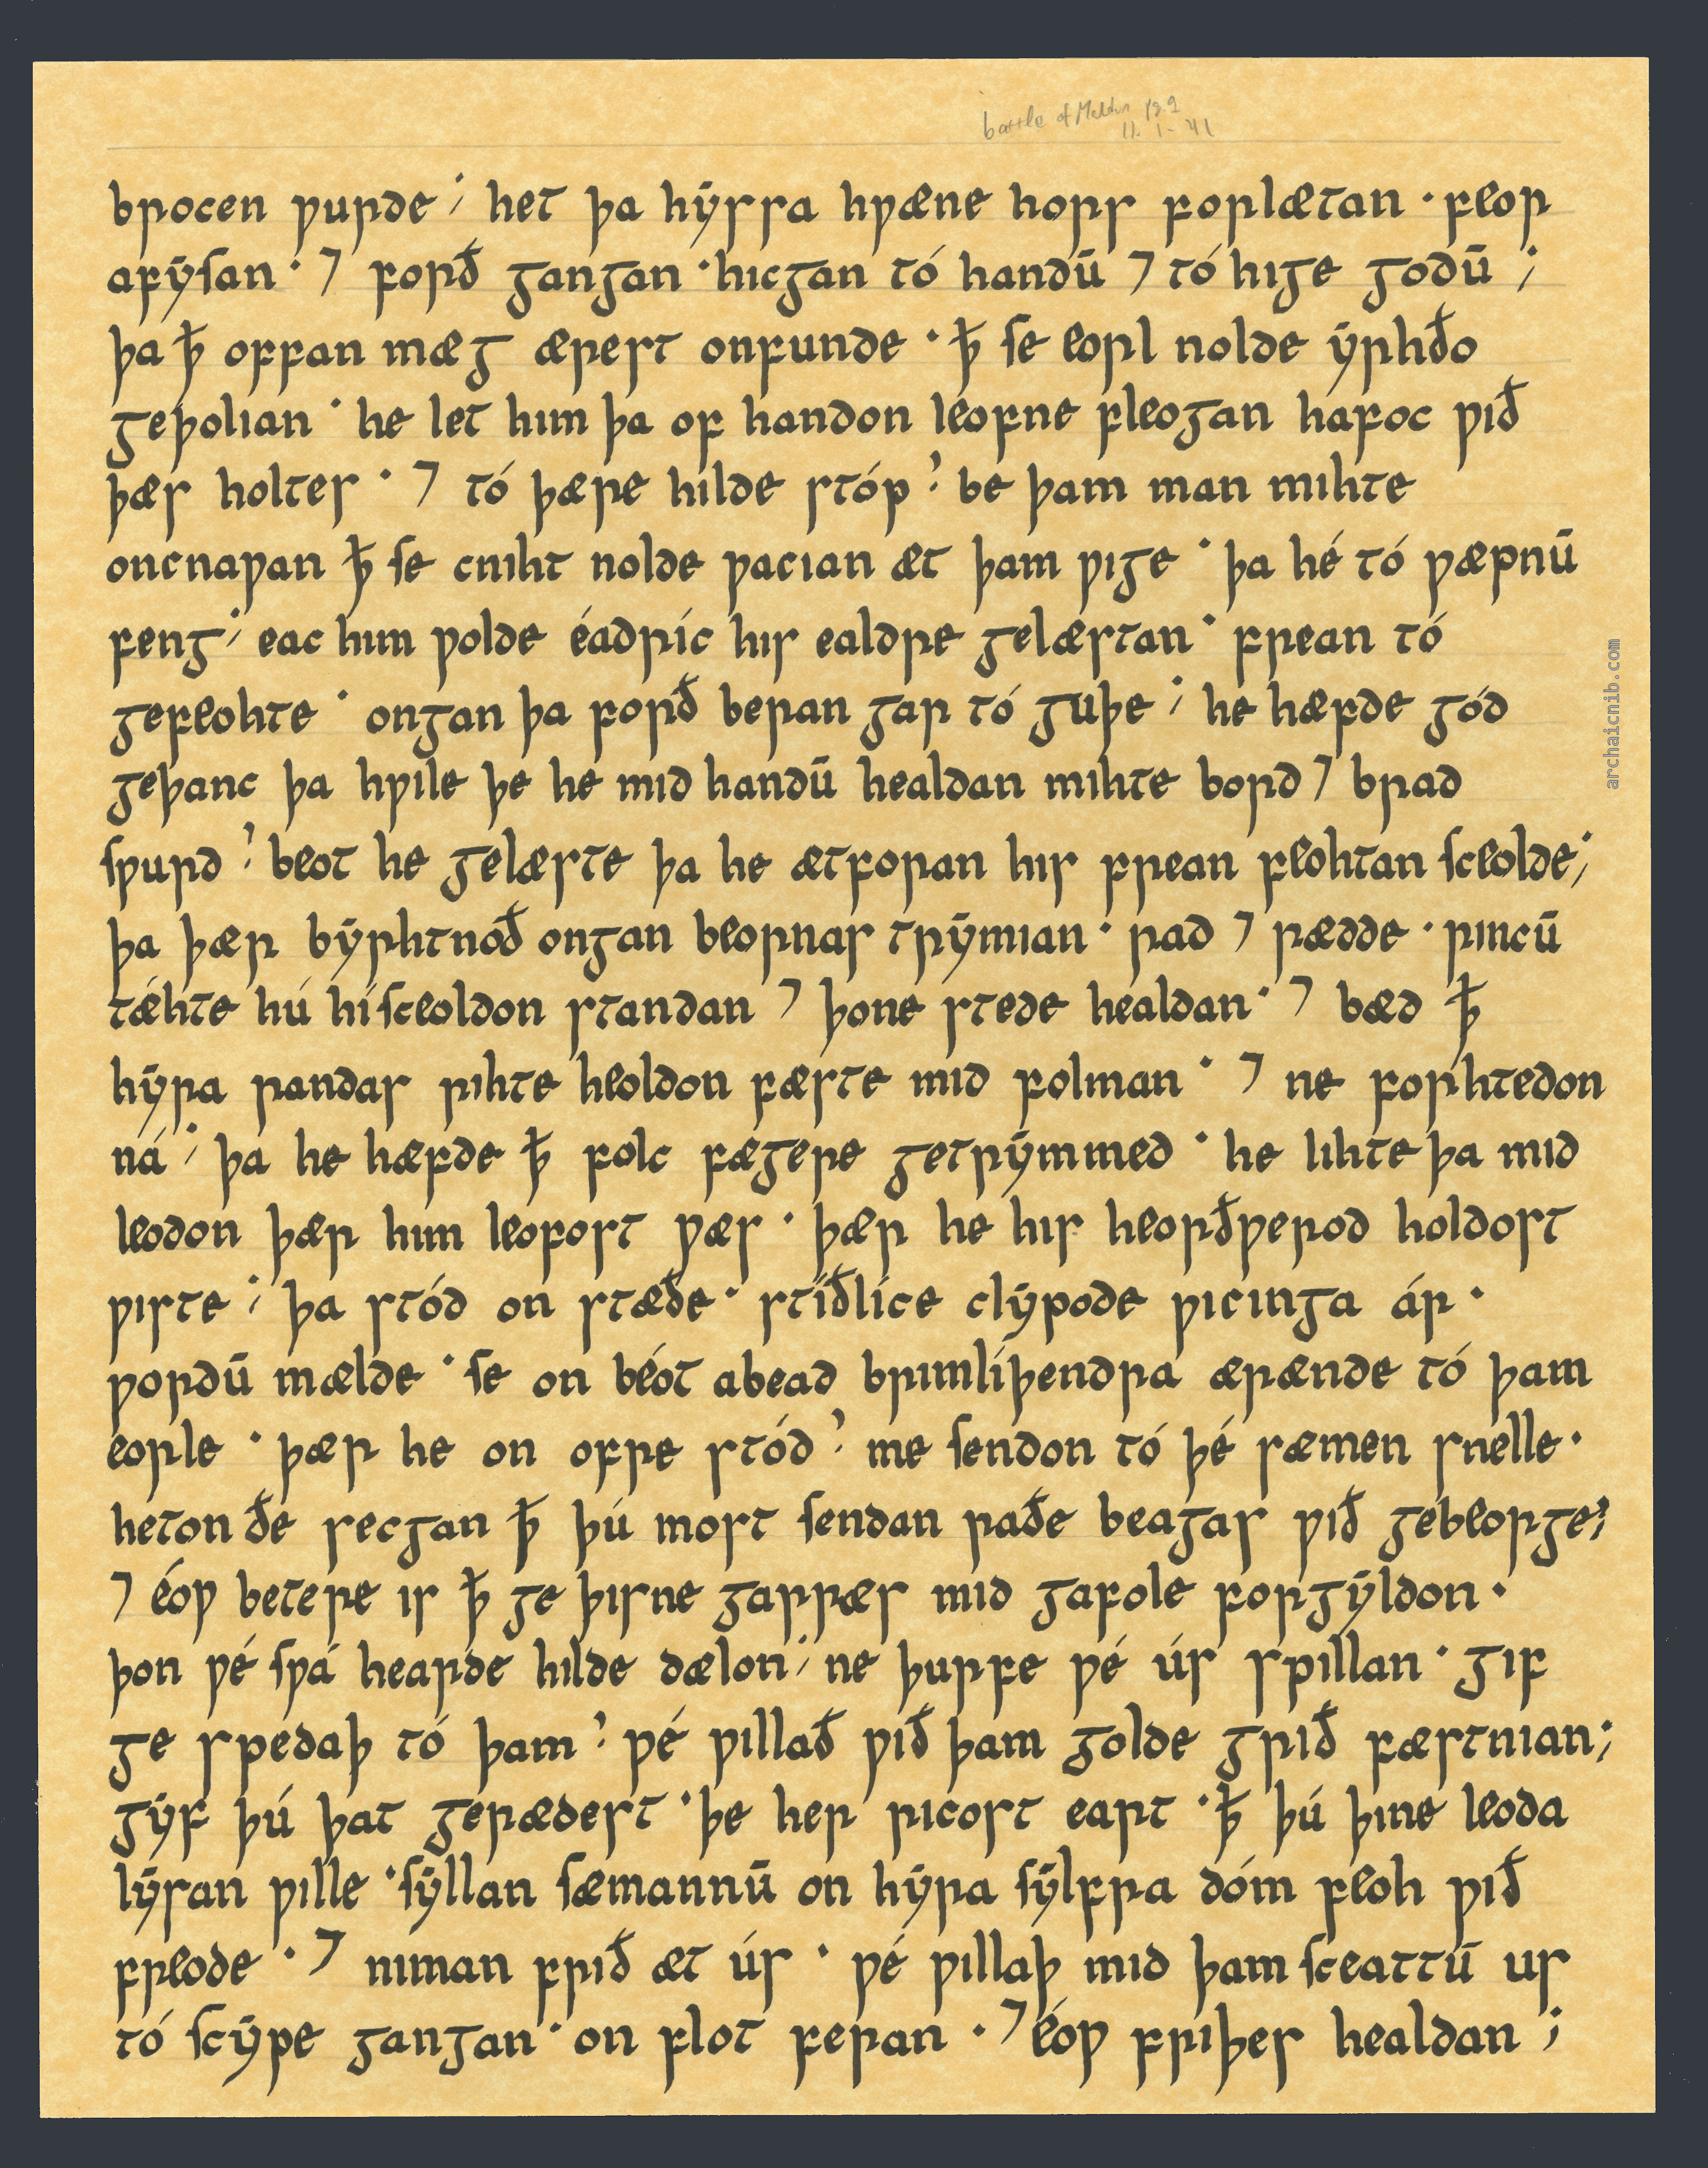 battle of Maldon pg. 1
ll. 1-41
brocen ƿurde ; het þa hẏssa hƿæne hors forlætan · feor
afẏſan · ⁊ forð gangan · hicgan tó handū ⁊ tó hige godū ;
þa ꝥ offan mæg ærest onfunde · ꝥ ſe eorl nolde ẏrhðo
geþolian · he let him þa of handon leofne fleogan hafoc ƿið
þæs holtes · ⁊ tó þære hilde stóp ? be þam man mihte
oncnaƿan ꝥ ſe cniht nolde ƿacian æt þam ƿige · þa hé tó ƿæpnū
feng ; eac him ƿolde éadric his ealdre gelæstan · frean tó
gefeohte · ongan þa forð beran gar tó guþe ; he hæfde gód
geþanc þa hƿile þe he mid handū healdan mihte bord ⁊ brad
ſƿurd ? beot he gelæste þa he ætforan his frean feohtan ſceolde ;
þa þær bẏrhtnoð ongan beornas trẏmian · rad ⁊ rædde · rincū
tæhte hú hí ſceoldon standan ⁊ þone stede healdan · ⁊ bæd ꝥ
hẏra randas rihte heoldon fæste mid folman · ⁊ ne forhtedon
ná ; þa he hæfde ꝥ folc fægere getrẏmmed · he lihte þa mid
leodon þær him leofost ƿæs · þær he his heorðƿerod holdost
ƿiste ; þa stód on stæðe · stiðlice clẏpode ƿicinga ár ·
ƿordū mælde · ſe on béot abead brimliþendra ærænde tó þam
eorle · þær he on ofre stód ? me ſendon tó þé sæmen snelle ·
heton ðe secgan ꝥ þú most ſendan raðe beagas ƿið gebeorge ;
⁊ éoƿ betere is ꝥ ge þisne garræs mid gafole forgẏldon ·
þon ƿé ſƿá hearde hilde dælon ; ne þurfe ƿé ús spillan · gif
ge spedaþ tó þam ? ƿé ƿillað ƿið þam golde grið fæstnian ;
gẏf þú þat gerædest · þe her ricost eart · ꝥ þú þine leoda
lẏsan ƿille · ſẏllan ſæmannū on hẏra ſẏlfra dóm feoh ƿið
freode · ⁊ niman frið æt ús · ƿé ƿillaþ mid þam ſceattū us
tó ſcẏpe gangan · on flot feran · ⁊ éoƿ friþes healdan ;
archaicnib.com